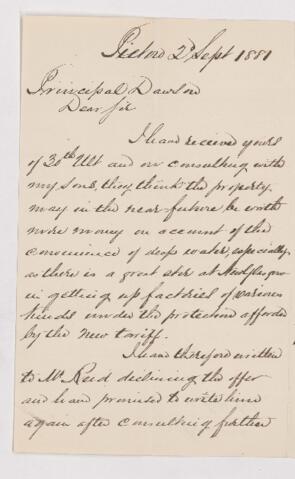 Pictou 2d Sept 1881
Principal Dawson
Dear Sir
I have received yours
of 30th Ult and on consulting with
my sons, they think the property
may in the near future, be worth
more money on account of the
convenience of deep water, especially
as there is a great stir at
in getting up factories of various
kinds under the protection afforded
by the new tariff.
I have therefore written
to Mr Reid declining the offer
and have promised to write him
again after consulting further